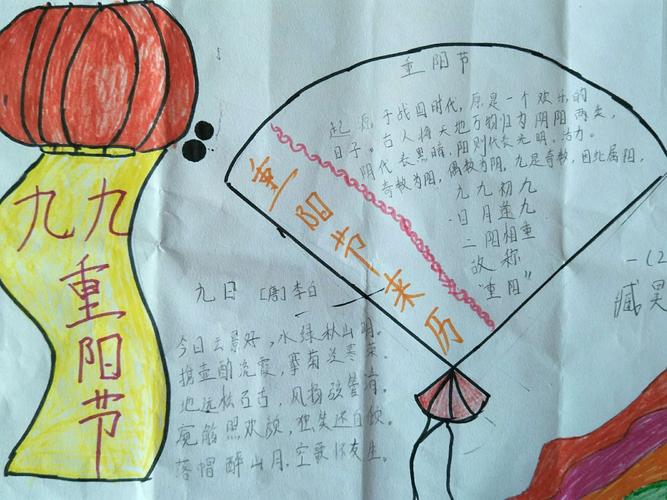 九九
重
阳
节
重阳节
起源于战国时代，原是一个欢乐的
日子。古人将天地万物归为阴阳两类，
阴代表黑暗，阳则代表光明、活力。
奇数为阳，偶数为阴，九是奇数，因此属阳，
九九初九
日月逢九
二阳相重
故称
“重阳”
重阳节来历
九日 [唐]李白
今日云景好，水绿秋山明。
携壶酌流霞，搴菊泛寒荣。
地远松石古，风扬弦管清。
窥觞照欢颜，独笑还自倾。
落帽醉山月，空歌怀友生。
一(2
臧昊